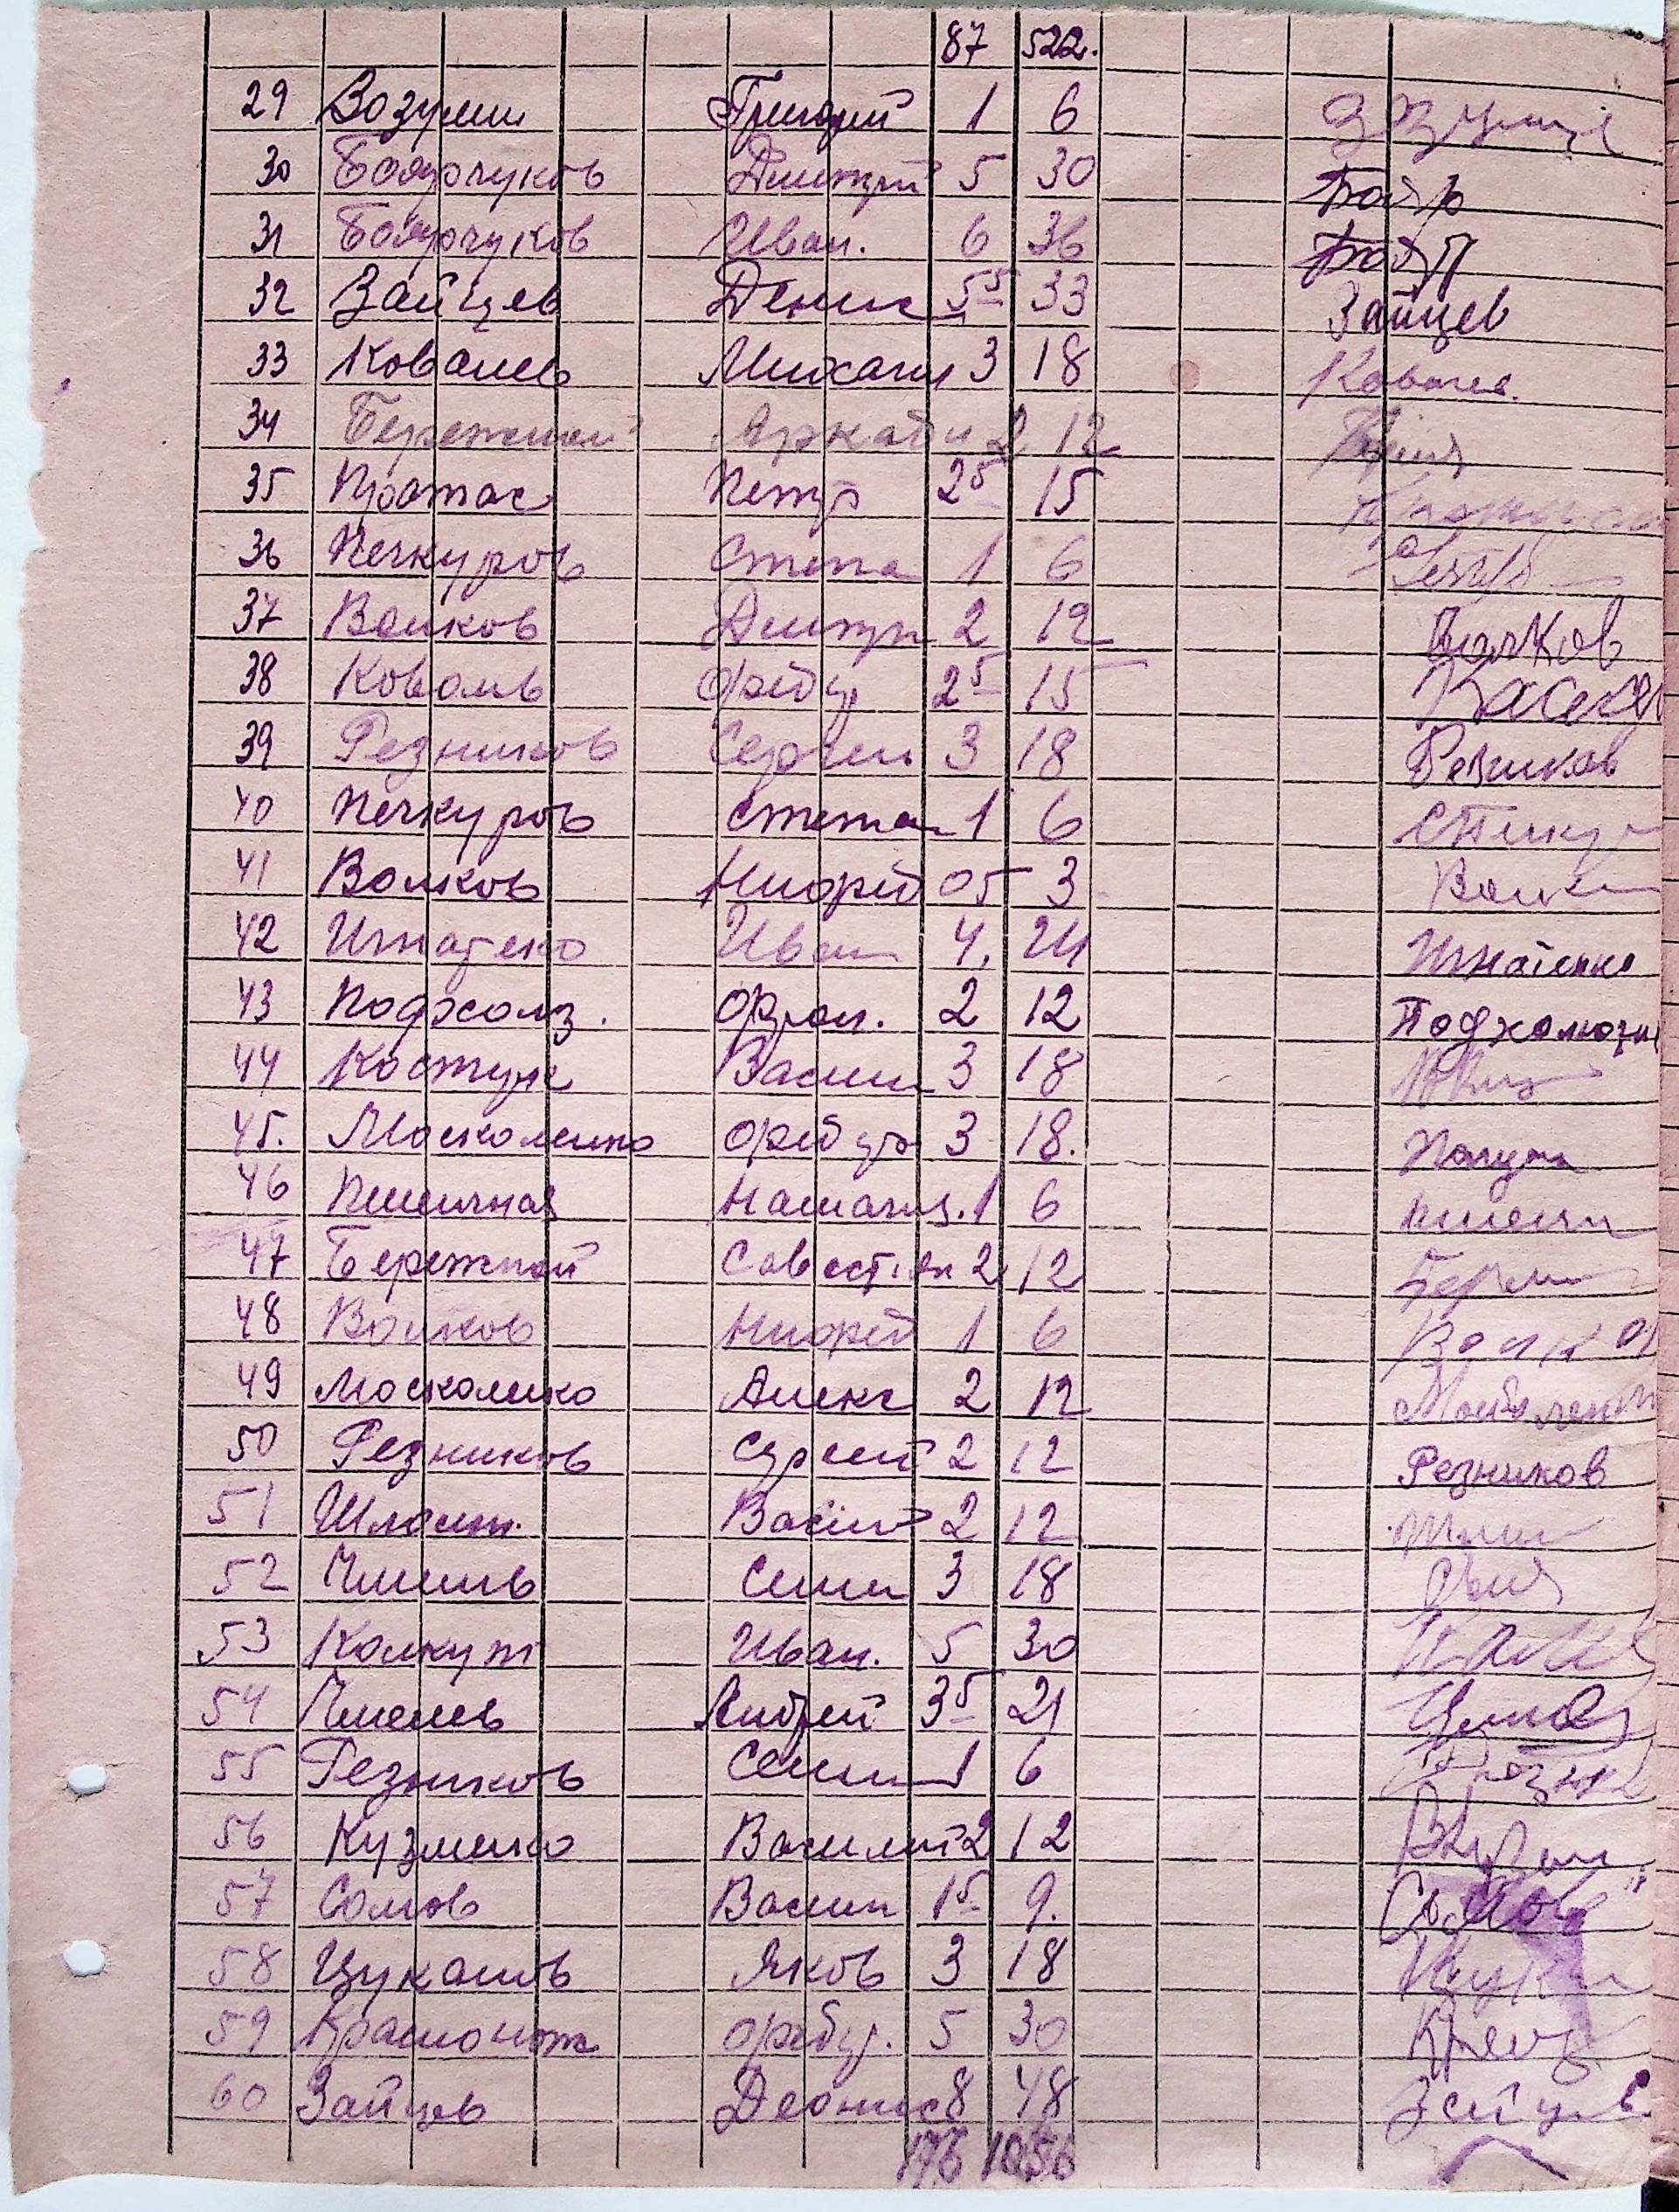 87 522.
29 Возумии Григорий 1 6
30 Боярчуков Дмитрий 5 30 Бояр
31 Боярчуков Иван. 6 36
32 Зайцев Денис 5 5 33 Зайцев
33 Ковалев Михаил 3 18 Ковалев.
34 Бережной Аркади 2 12
35 Протас Петр 2 5 15
36 Печкуров Степа 1 6
37 Волков Дмитри 2 12 Волков
38 Коваль Федор 2 5 15
39 Резников Сергей 3 18 Резников
40 Печкуров Степан 1 6
41 Волков 05 3 Волк
42 Игнатенко Иван 4. 24 Игнатенко
43 Подхолз. Фрол. 2 12 Подхолюзи
44 Костул Васили 3 18
45. Москаленко Федор 3 18.
46 Пшеничная Наталия. 1 6 Пшени
47 Бережной Савостьян 2 12 Бережн
48 Волков 1 6 Волков
49 Москаленко Алекс 2 12
50 Резников Сергей 2 12 Резников
51 Василий 2 12
52 Чмель Семен 3 18
53 Колкун Иван. 5 30
54 Чмелев Андрей 3 5 21
55 Резников Семен 1 6
56 Кузменко Василий 2 12
57 Сомов Васили 1 5 9. Сомов
58 Цуканов Яков 3 18 Цукан
59 Федор. 5 30
60 Зайцев Деонис 8 48 Зайцев.
176 1056